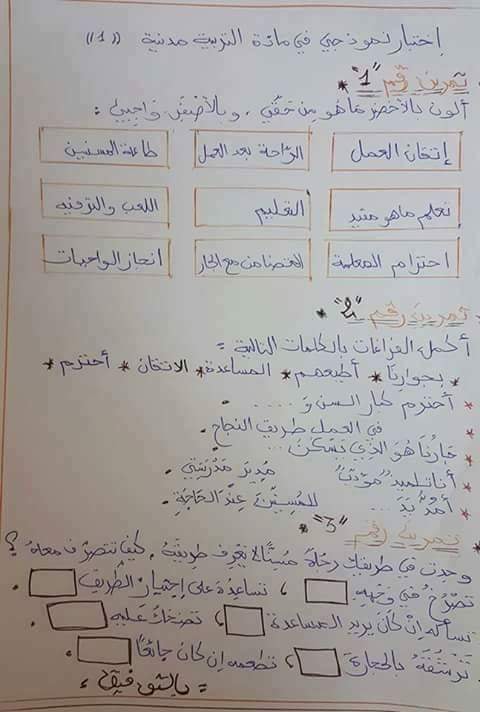 إختبار نموذجي في مادة التربية مدنية "1"
تمرين رقم "1" *
ألون بالأخضر ماهو من حقي، وبالأصفر واجبي :
إتقان العمل
الراحة بعد العمل
طاعة المسنين
تعلم ماهو مفيد
التعليم
اللعب والترفيه
احترام المعلمة
التضامن مع الجار
انجاز الواجبات
تمرين رقم "2" *
أكمل الفراغات بالكلمات التالية =
بجوارنا * أطيعهم * المساعدة * الاتقان * أحترم *
* أحترم كبار السن و .....
* ..... في العمل طريق النجاح.
* جارنا هو الذي يسكن .....
* أنا تلميذ "مؤدب" ..... مدير مدرستي.
* أمد يد ..... للمسنين عند الحاجة.
* تمرين رقم "3" *
وجدت في طريقك رجلا مسنا لا يعرف طريقه، كيف تتصرف معه ؟
تصرخ في وجهه ، تساعده على إجتياز الطريق .
تسأله إن كان يريد المساعدة ، تضحك عليه .
ترشقه بالحجارة ، تطعمه إن كان جائعا .
= بالتوفيق =